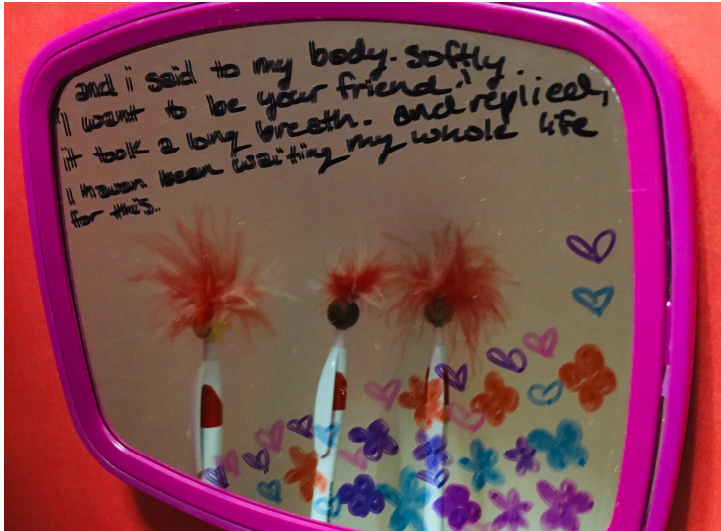 and i said to my body. softly.
I want to be your friend."
it took a long breath. and replied,
I haven been waiting my whole life
for this.